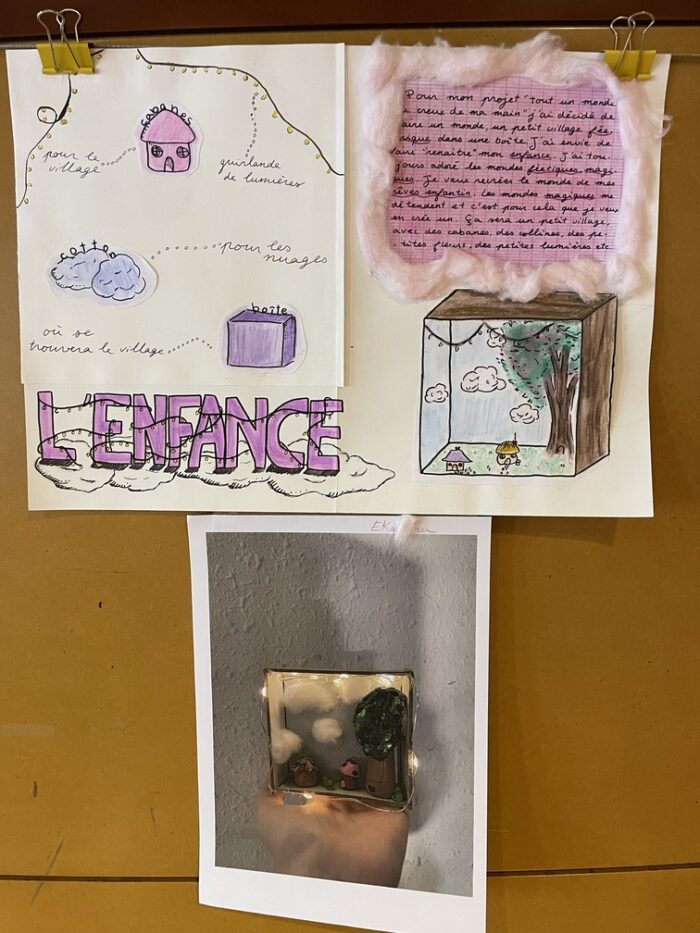 cabanes
pour le
village
guirlande
de lumières
cotton
pour les
nuages
boîte
où se
trouvera le village
L'ENFANCE
Pour mon projet "tout un monde
creux de ma main" j'ai décidé de
faire un monde, un petit village fée
dans une boîte. J'ai envie de
faire "renaître" mon enfance. J'ai tou-
jours adoré les mondes féériques, magi-
ques. Je veux recréer le monde de mes
rêves enfantis. Les mondes magiques me
détendent et c'est pour cela que je veux
en crée un. Ça sera un petit village,
avec des cabanes, des collines, des pe-
tites fleurs, des petites lumières etc.